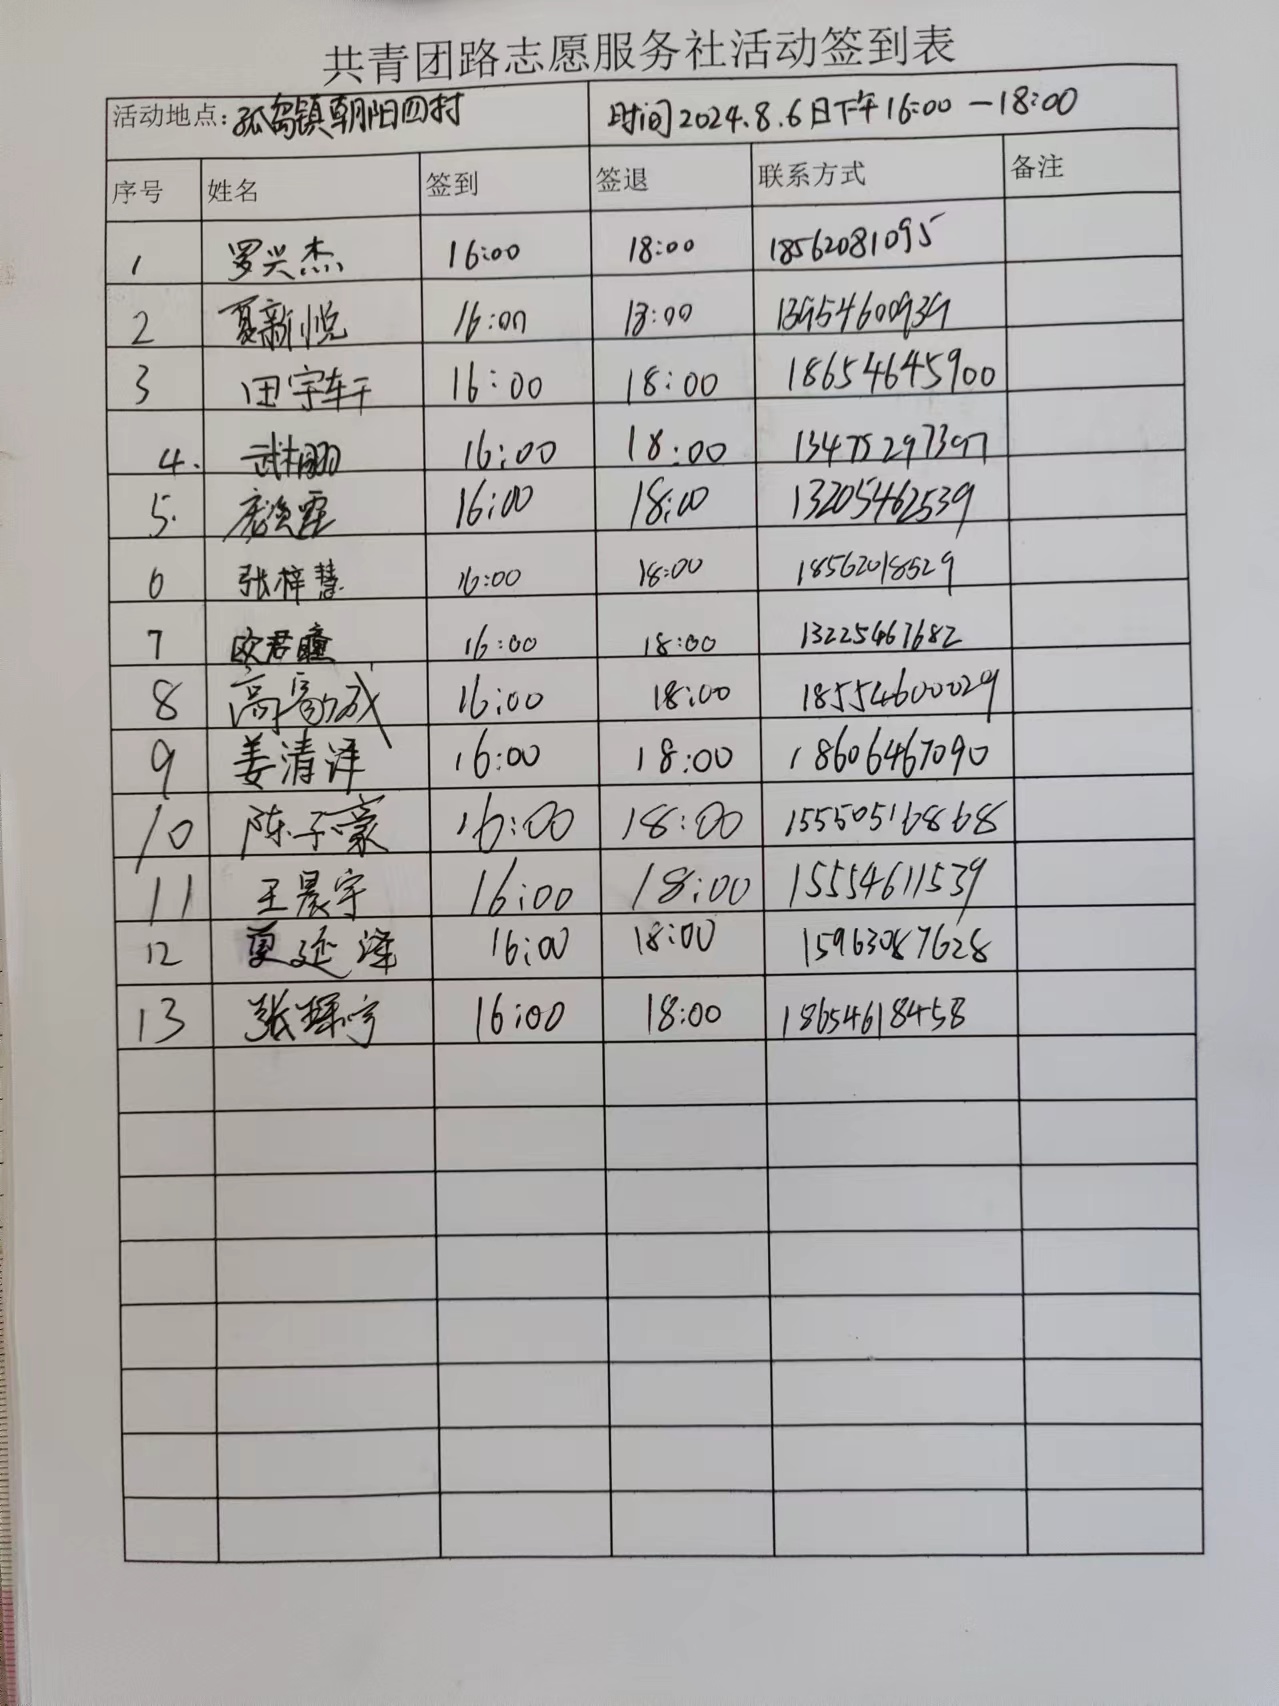 共青团路志愿服务社活动签到表
活动地点：孤岛镇朝阳四村 时间2024.8.6日下午16:00—18:00
序号 姓名 签到 签退 联系方式 备注
1 罗兴杰 16:00 18:00 18562081095
2 夏新悦 16:00 18:00 13954600939
3 田宇轩 16:00 18:00 18654645900
4. 武翮 16:00 18:00 13475297397
5. 16:00 18:00 13205462539
6 张梓慧 16:00 18:00 18562018529
7 欧君瞳 16:00 18:00 13225467682
8 高 16:00 18:00 18554600029
9 姜清洋 16:00 18:00 18606467090
10 陈子豪 16:00 18:00
11 王晨宇 16:00 18:00 15554611539
12 夏延泽 16:00 18:00 15963087628
13 张琛宇 16:00 18:00 18654618458